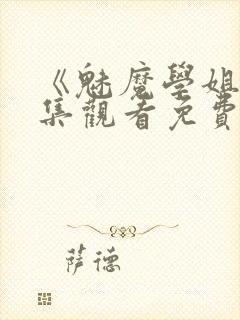 《魅魔學姐
集觀看免費
薩德